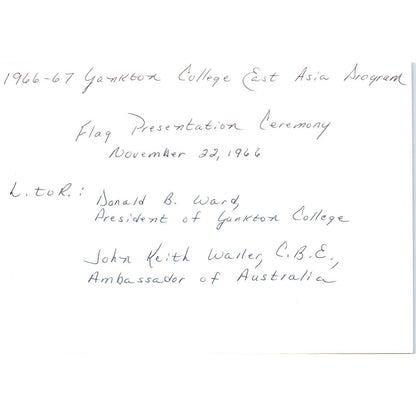 1966-67 Yankton College East Asia Program
Flag Presentation Ceremony
November 22, 1966
L. to R.: Donald B. Ward,
President of Yankton College
John Keith Waller, C.B.E.,
Ambassador of Australia